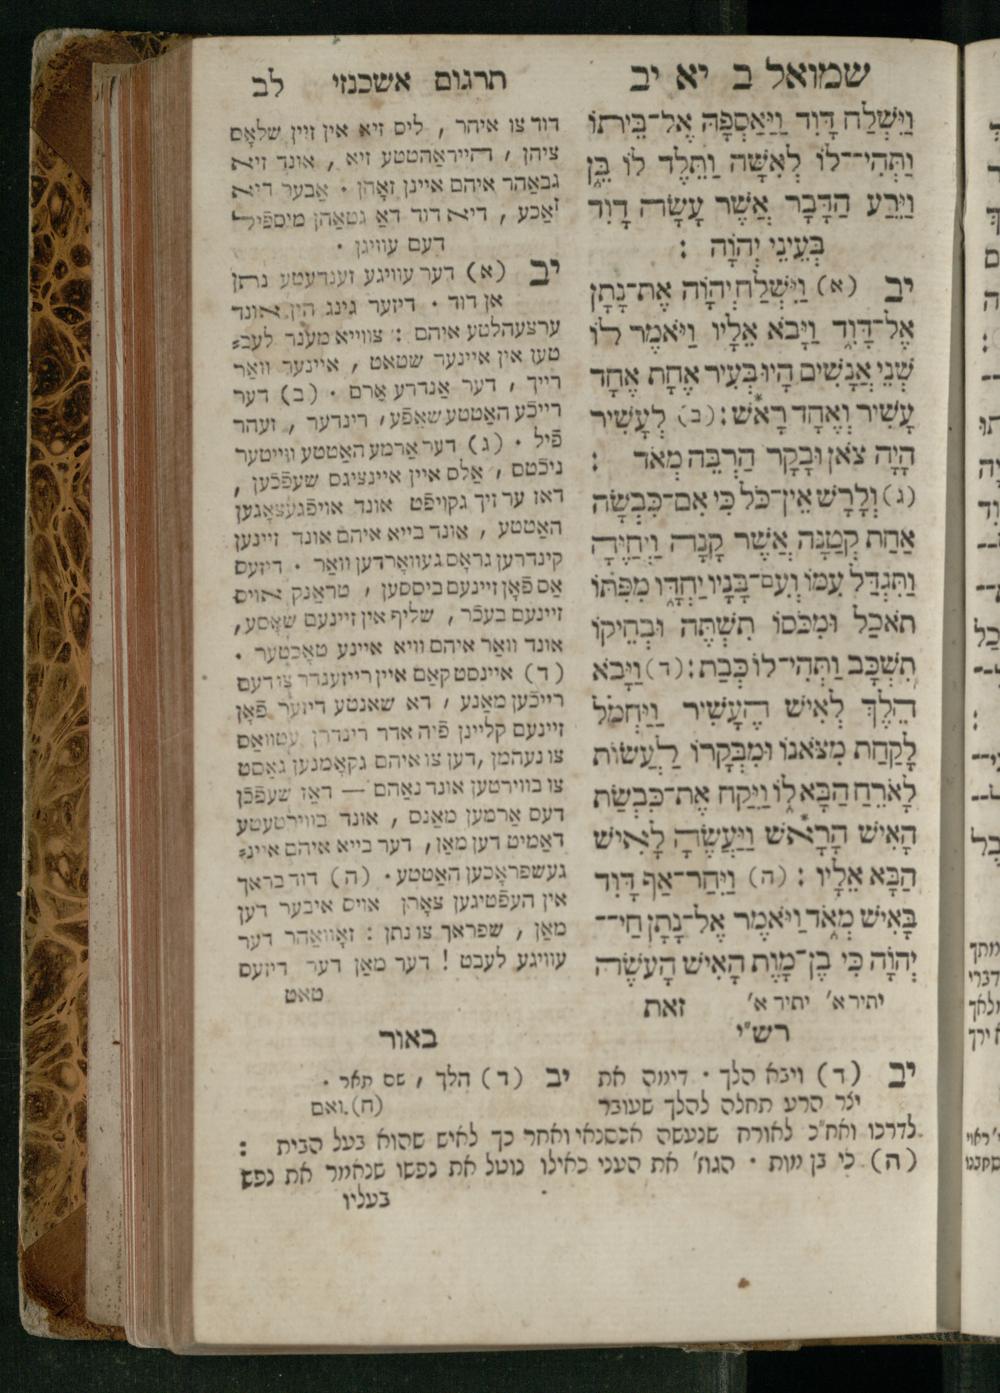 שמואל ב יא יב
תרגום אשכנזי לב
וַיִּשְׁלַח דָּוִד וַיַּאַסְפָהּ אֶל־בֵּיתוֹ
וַתְּהִי־־לוֹ לְאִשָּׁה וַתֵּלֶד לוֹ בֵּן
וַיֵּרַע הַדָּבָר אֲשֶׁר עָשָׂה דָוִד
בְּעֵינֵי יְהֹוָה :
יב (א) וַיִּשְׁלַח יְהֹוָה אֶת־נָתָן
אֶל־דָּוִד וַיָּבֹא אֵלָיו וַיֹּאמֶר לוֹ
שְׁנֵי אֲנָשִׁים הָיוּ בְּעִיר אֶחָת אֶחָד
עָשִׁיר וְאֶחָד רָאשׁ : (ב) לְעָשִׁיר
הָיָה צֹאן וּבָקָר הַרְבֵּה מְאֹד :
(ג) וְלָרָשׁ אֵין־כֹּל כִּי אִם־כִּבְשָׂה
אַחַת קְטַנָּה אֲשֶׁר קָנָה וַיְחַיֶּהָ
וַתִּגְדַּל עִמּוֹ וְעִם־בָּנָיו יַחְדָּו מִפִּתּוֹ
תֹאכַל וּמִכֹּסוֹ תִשְׁתֶּה וּבְחֵיקוֹ
תִשְׁכָּב וַתְּהִי־לוֹ כְּבַת : (ד) וַיָּבֹא
הֵלֶךְ לְאִישׁ הֶעָשִׁיר וַיַּחְמֹל
לָקַחַת מִצֹּאנוֹ וּמִבְּקָרוֹ לַעֲשׂוֹת
לָאֹרֵחַ הַבָּא לוֹ וַיִּקַּח אֶת־כִּבְשַׂת
הָאִישׁ הָרָאשׁ וַיַּעֲשֶׂהָ לָאִישׁ
הַבָּא אֵלָיו : (ה) וַיִּחַר־אַף דָּוִד
בָּאִישׁ מְאֹד וַיֹּאמֶר אֶל־נָתָן חַי־־
יְהֹוָה כִּי בֶן־מָוֶת הָאִישׁ הָעֹשֶׂה
יתיר א' יתיר א' זאת
דוד צו איהר , ליס זיא אין זיין שלאָס
ציהן , הייראַהטעטע זיא , אונד זיא
געבאַהר איהם איינן זאָהן . אַבער דיא
זאַכע , דיא דוד דאַ געטאַהן מיספֿיל
דעם עוויגן .
יב (א) דער עוויגע זענדעטע נתן
אן דוד . דיזער גינג הין אונד
ערצעהלטע איהם : צווייא מענר לעב⸗
טען אין איינער שטאט , איינער וואַר
רייך , דער אַנדרע אַרם . (ב) דער
רייכֿע האַטטע שאַפֿע , רינדער , זעהר
פֿיל . (ג) דער אַרמע האַטטע ווייטער
ניכֿטס , אַלס איין איינציגס שעפֿכֿען ,
דאז ער זיך געקויפֿט אונד אויפֿגעצאָגען
האַטטע , אונד בייא איהם אונד זיינען
קינדרען גראָס געוואָרדען וואַר . דיזעס
אַס פֿאָן זיינעם ביססען , טראַנק אויס
זיינעם בעכֿר , שליף אין זיינעם שאָסע ,
אונד וואַר איהם וויא איינע טאָכֿטער .
(ד) איינסט קאַם איין רייזענדר צו דעם
רייכֿען מאַנע , דא שאנטע דיזער פֿאָן
זיינעם קליינן פֿיה אדר רינדרן עטוואַס
צו נעהמן , דען צו איהם געקאָמנען גאַסט
צו בווירטען אונד נאַהם — דאַז שעפֿכֿן
דעס אַרמען מאַנס , אונד בווירטעטע
דאַמיט דען מאַן , דער בייא איהם איינ⸗
געשפראָכֿען האַטטע . (ה) דוד בראך
אין העפֿטיגען צאָרן אויס איבער דען
מאַן , שפראך צו נתן : זאָוואַהר דער
עוויגע לעבט ! דער מאַן דער דיזעס
טאט
רש"י
יב (ד) ויבא הלך . דימה את
יצר הרע תחלה להלך שעובר
לדרכו ואח"כ לאורח שנעשה אכסנאי ואחר כך לאיש שהוא בעל הבית :
(ה) כי בן מות . הגוז' את העני כאילו נוטל את נפשו שנאמר את נפש
בעליו
באור
יב (ד) הלך , שם תאר .
(ח) ואם